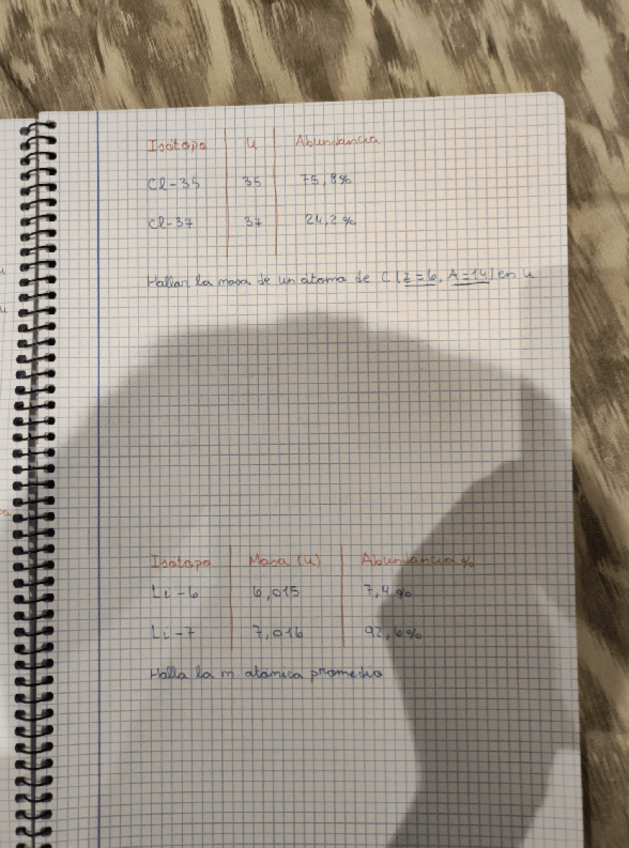 Isótopo u Abundancia
Cl-35 35 75,8%
Cl-37 37 24,2%
Hallar la masa de un átomo de C (Z=6, A=14) en u
Isótopo Masa (u) Abundancia %
Li-6 6,015 7,4%
Li-7 7,016 92,6%
Halla la m. atómica promedio